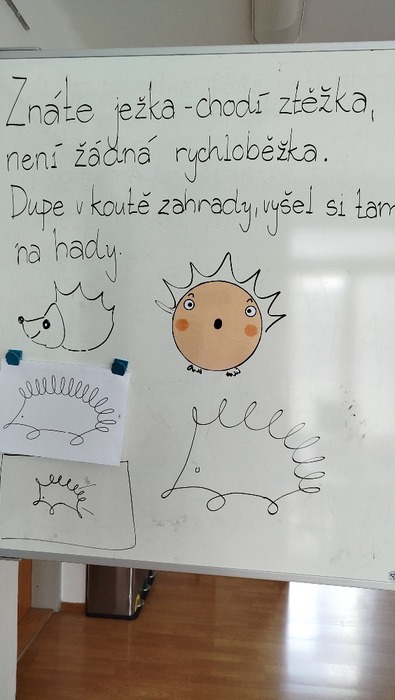 Znáte ježka - chodí ztěžka,
není žádná rychloběžka.
Dupe v koutě zahrady, vyšel si tam
na hady.